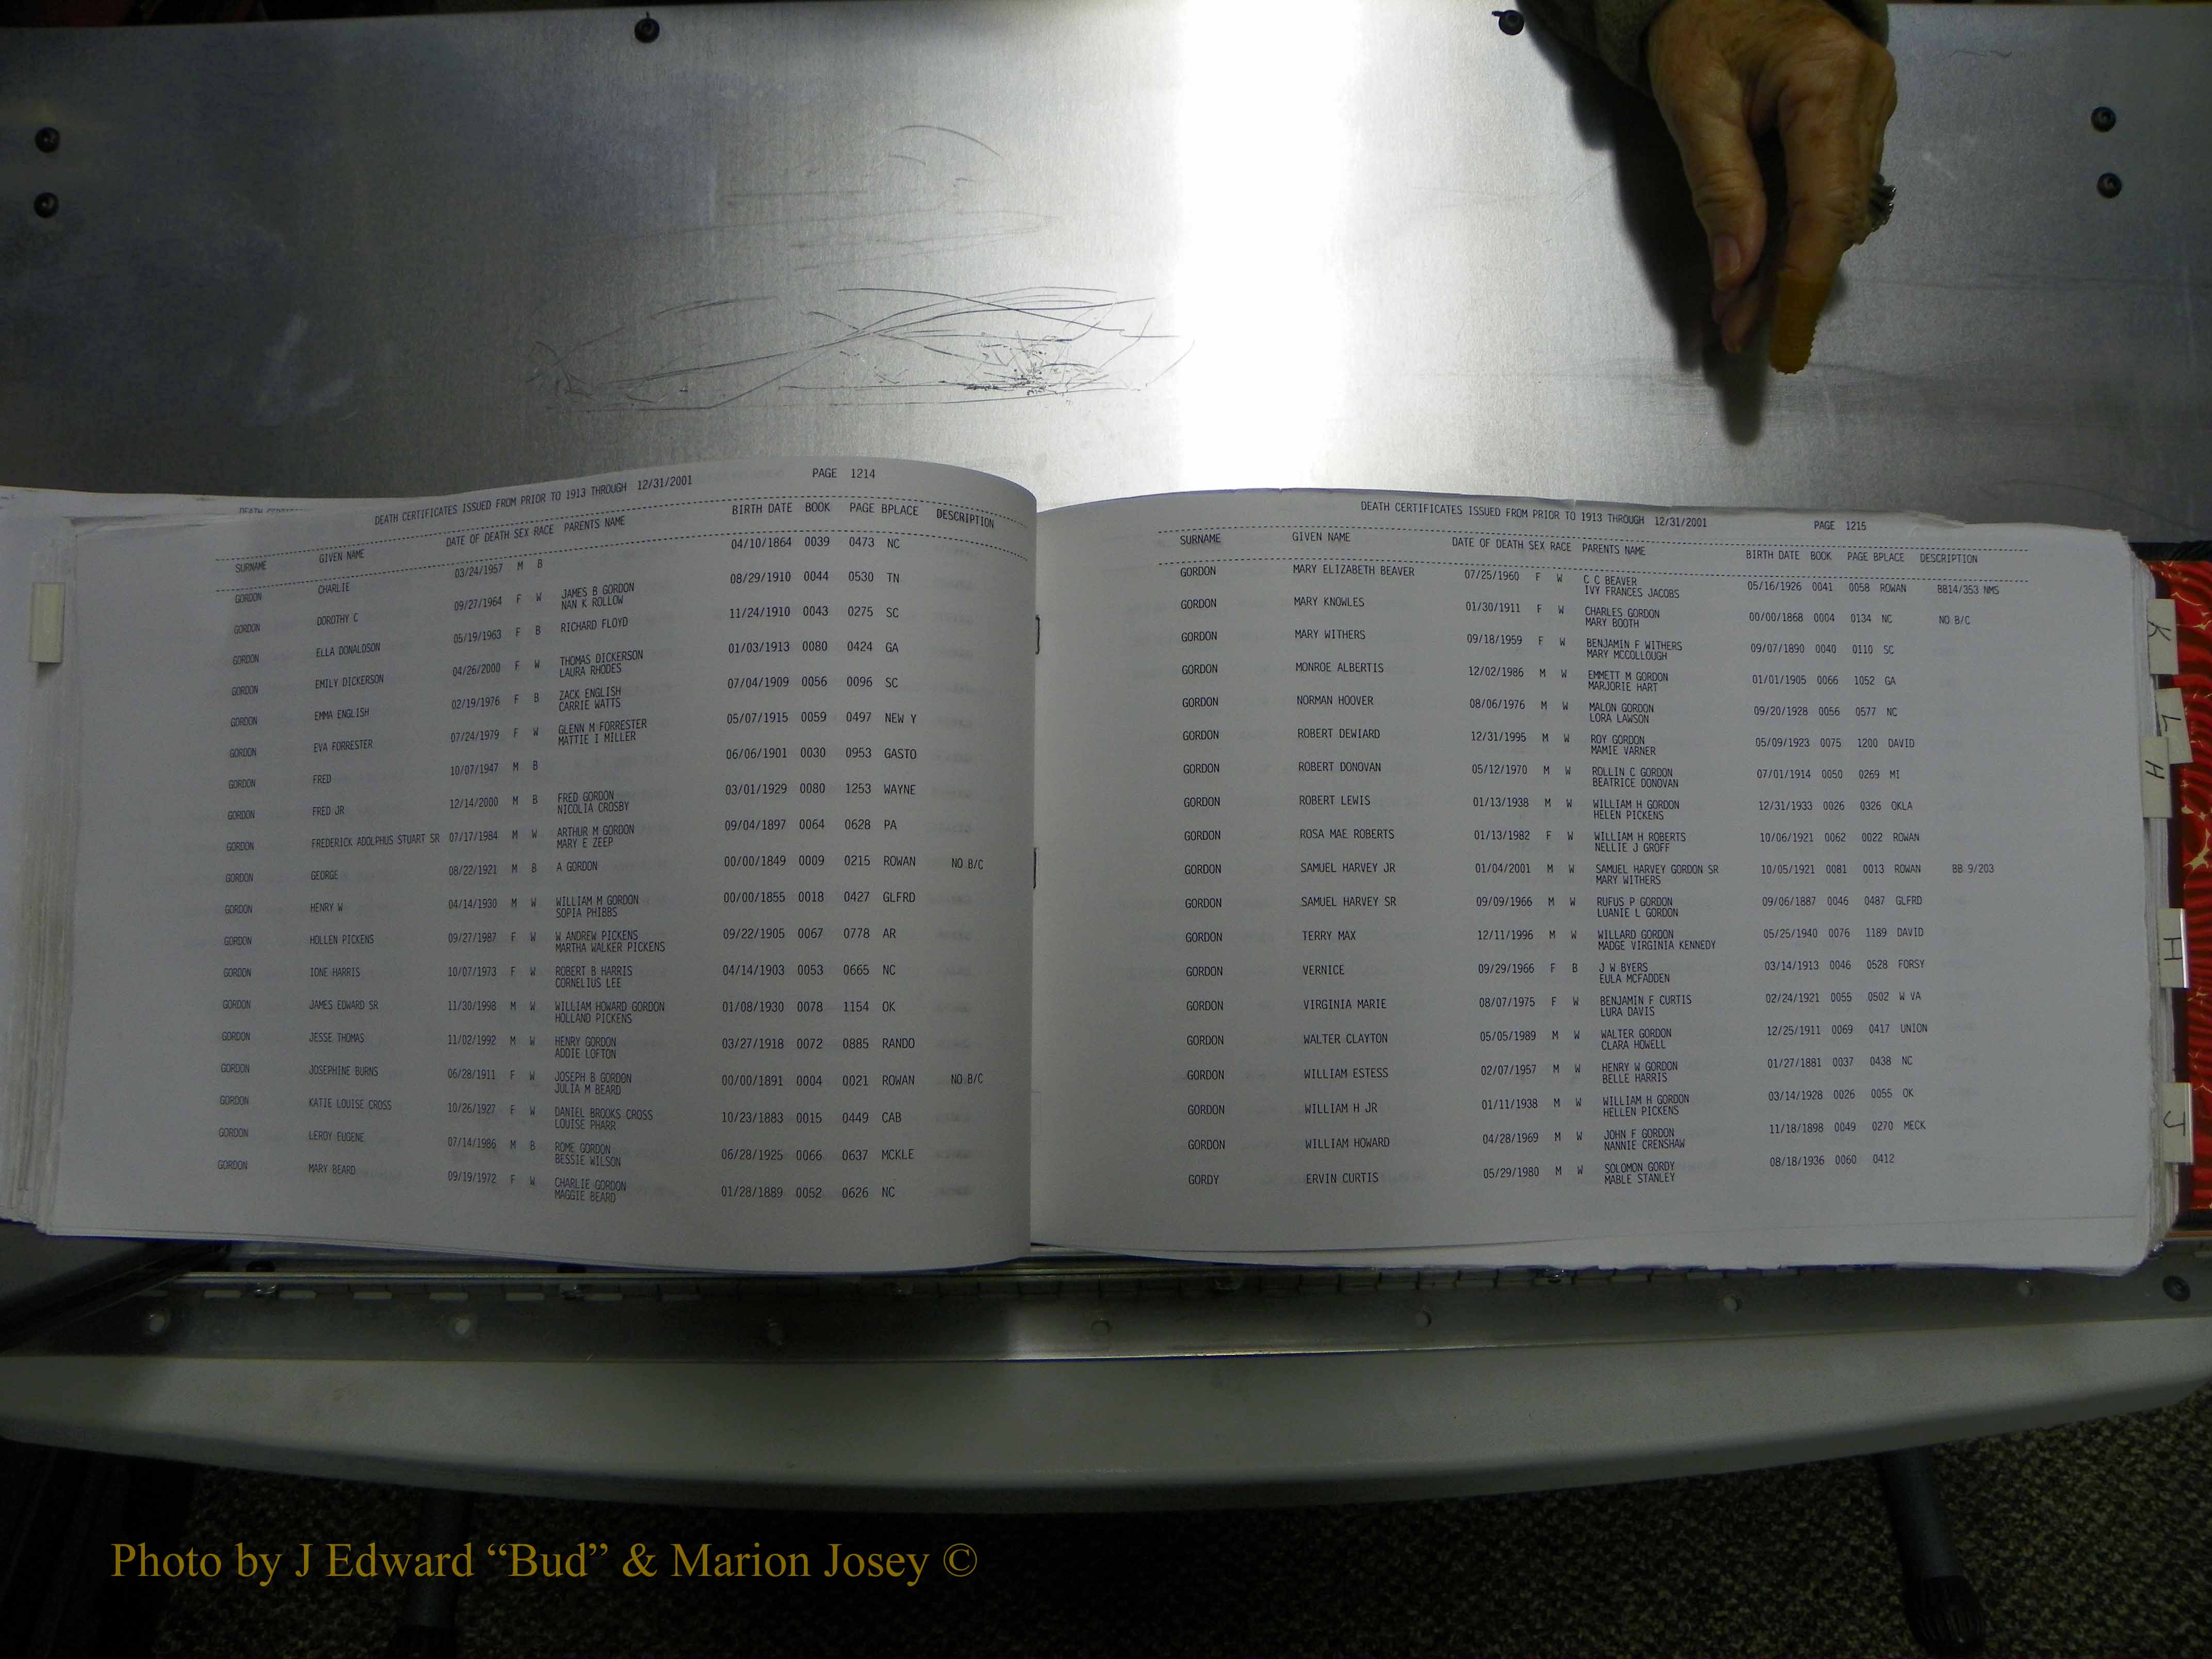 DEATH CERTIFICATES ISSUED FROM PRIOR TO 1913 THROUGH 12/31/2001 PAGE 1214
SURNAME GIVEN NAME DATE OF DEATH SEX RACE PARENTS NAME BIRTH DATE BOOK PAGE BPLACE DESCRIPTION
GORDON CHARLIE 03/24/1957 M B 04/10/1864 0039 0473 NC
GORDON DOROTHY C 09/27/1964 F W JAMES B GORDON 08/29/1910 0044 0530 TN
NAN K ROLLOW
GORDON ELLA DONALDSON 05/19/1963 F B RICHARD FLOYD 11/24/1910 0043 0275 SC
GORDON EMILY DICKERSON 04/26/2000 F W THOMAS DICKERSON 01/03/1913 0080 0424 GA
LAURA RHODES
GORDON EMMA ENGLISH 02/19/1976 F B ZACK ENGLISH 07/04/1909 0056 0096 SC
CARRIE WATTS
GORDON EVA FORRESTER 07/24/1979 F W GLENN M FORRESTER 05/07/1915 0059 0497 NEW Y
MATTIE I MILLER
GORDON FRED 10/07/1947 M B 06/06/1901 0030 0953 GASTO
GORDON FRED JR 12/14/2000 M B FRED GORDON 03/01/1929 0080 1253 WAYNE
NICOLIA CROSBY
GORDON FREDERICK ADOLPHUS STUART SR 07/17/1984 M W ARTHUR M GORDON 09/04/1897 0064 0628 PA
MARY E ZEEP
GORDON GEORGE 08/22/1921 M B A GORDON 00/00/1849 0009 0215 ROWAN NO B/C
GORDON HENRY W 04/14/1930 M W WILLIAM M GORDON 00/00/1855 0018 0427 GLFRD
SOPIA PHIBBS
GORDON HOLLEN PICKENS 09/27/1987 F W W ANDREW PICKENS 09/22/1905 0067 0778 AR
MARTHA WALKER PICKENS
GORDON IONE HARRIS 10/07/1973 F W ROBERT B HARRIS 04/14/1903 0053 0665 NC
CORNELIUS LEE
GORDON JAMES EDWARD SR 11/30/1998 M W WILLIAM HOWARD GORDON 01/08/1930 0078 1154 OK
HOLLAND PICKENS
GORDON JESSE THOMAS 11/02/1992 M W HENRY GORDON 03/27/1918 0072 0885 RANDO
ADDIE LOFTON
GORDON JOSEPHINE BURNS 06/28/1911 F W JOSEPH B GORDON 00/00/1891 0004 0021 ROWAN NO B/C
JULIA M BEARD
GORDON KATIE LOUISE CROSS 10/26/1927 F W DANIEL BROOKS CROSS 10/23/1883 0015 0449 CAB
LOUISE PHARR
GORDON LEROY EUGENE 07/14/1986 M B ROME GORDON 06/28/1925 0066 0637 MCKLE
BESSIE WILSON
GORDON MARY BEARD 09/19/1972 F W CHARLIE GORDON 01/28/1889 0052 0626 NC
MAGGIE BEARD
DEATH CERTIFICATES ISSUED FROM PRIOR TO 1913 THROUGH 12/31/2001 PAGE 1215
SURNAME GIVEN NAME DATE OF DEATH SEX RACE PARENTS NAME BIRTH DATE BOOK PAGE BPLACE DESCRIPTION
GORDON MARY ELIZABETH BEAVER 07/25/1960 F W C C BEAVER 05/16/1926 0041 0058 ROWAN BB14/353 NMS
IVY FRANCES JACOBS
GORDON MARY KNOWLES 01/30/1911 F W CHARLES GORDON 00/00/1868 0004 0134 NC NO B/C
MARY BOOTH
GORDON MARY WITHERS 09/18/1959 F W BENJAMIN F WITHERS 09/07/1890 0040 0110 SC
MARY MCCOLLOUGH
GORDON MONROE ALBERTIS 12/02/1986 M W EMMETT M GORDON 01/01/1905 0066 1052 GA
MARJORIE HART
GORDON NORMAN HOOVER 08/06/1976 M W MALON GORDON 09/20/1928 0056 0577 NC
LORA LAWSON
GORDON ROBERT DEWIARD 12/31/1995 M W ROY GORDON 05/09/1923 0075 1200 DAVID
MAMIE VARNER
GORDON ROBERT DONOVAN 05/12/1970 M W ROLLIN C GORDON 07/01/1914 0050 0269 MI
BEATRICE DONOVAN
GORDON ROBERT LEWIS 01/13/1938 M W WILLIAM H GORDON 12/31/1933 0026 0326 OKLA
HELEN PICKENS
GORDON ROSA MAE ROBERTS 01/13/1982 F W WILLIAM H ROBERTS 10/06/1921 0062 0022 ROWAN
NELLIE J GROFF
GORDON SAMUEL HARVEY JR 01/04/2001 M W SAMUEL HARVEY GORDON SR 10/05/1921 0081 0013 ROWAN BB 9/203
MARY WITHERS
GORDON SAMUEL HARVEY SR 09/09/1966 M W RUFUS P GORDON 09/06/1887 0046 0487 GLFRD
LUANIE L GORDON
GORDON TERRY MAX 12/11/1996 M W WILLARD GORDON 05/25/1940 0076 1189 DAVID
MADGE VIRGINIA KENNEDY
GORDON VERNICE 09/29/1966 F B J W BYERS 03/14/1913 0046 0528 FORSY
EULA MCFADDEN
GORDON VIRGINIA MARIE 08/07/1975 F W BENJAMIN F CURTIS 02/24/1921 0055 0502 W VA
LURA DAVIS
GORDON WALTER CLAYTON 05/05/1989 M W WALTER GORDON 12/25/1911 0069 0417 UNION
CLARA HOWELL
GORDON WILLIAM ESTESS 02/07/1957 M W HENRY W GORDON 01/27/1881 0037 0438 NC
BELLE HARRIS
GORDON WILLIAM H JR 01/11/1938 M W WILLIAM H GORDON 03/14/1928 0026 0055 OK
HELLEN PICKENS
GORDON WILLIAM HOWARD 04/28/1969 M W JOHN F GORDON 11/18/1898 0049 0270 MECK
NANNIE CRENSHAW
GORDY ERVIN CURTIS 05/29/1980 M W SOLOMON GORDY 08/18/1936 0060 0412
MABLE STANLEY
K
L
H
H
J
Photo by J Edward “Bud” & Marion Josey ©